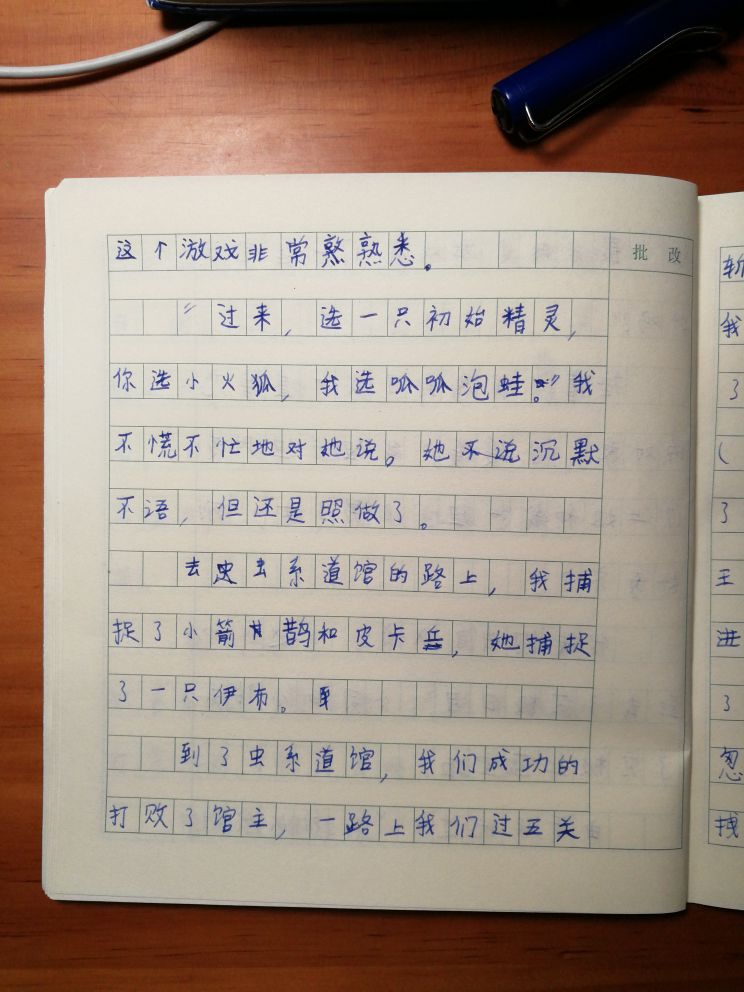 这个游戏非常熟熟悉。
批改
“过来，选一只初始精灵，
你选小火狐，我选呱呱泡蛙。”我
不慌不忙地对她说。她不说沉默
不语，但还是照做了。
去虫虫系道馆的路上，我捕
捉了小箭鹊和皮卡丘，她捕捉
了一只伊布。
到了虫系道馆，我们成功的
打败了馆主，一路上我们过五关
斩
我
了
（
了
王
进
了
忽
找